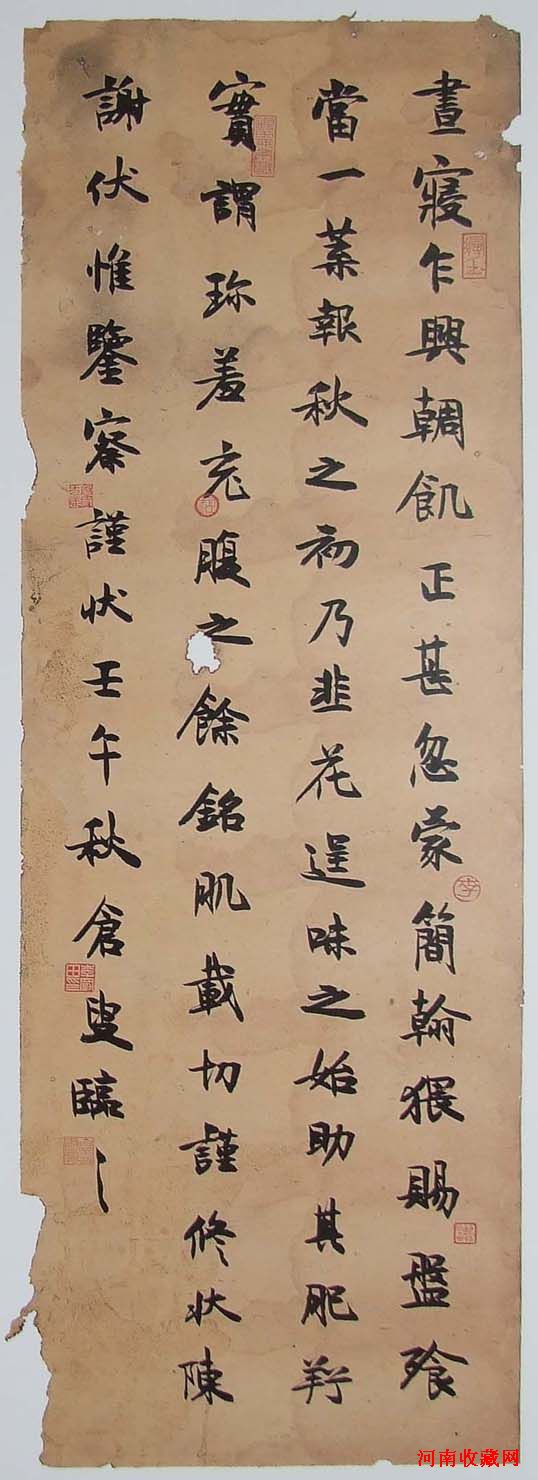 晝寢乍興輖飢正甚忽蒙簡翰猥賜盤飱
當一葉報秋之初乃韭花逞味之始助其肥羜
實謂珎羞充腹之餘銘肌載切謹修狀陳
謝伏惟鑒察謹狀壬午秋倉叟臨之
河南收藏网